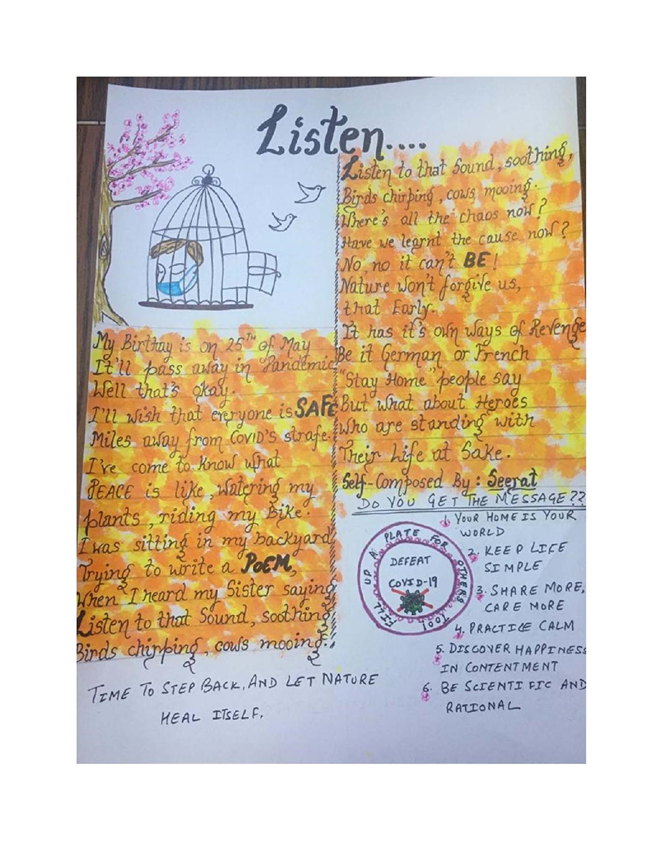 Listen....
My Birthay is on 25TH of May
It'll pass away in Pandemic
Well that's okay.
I'll wish that everyone is SAFE
Miles away from Covid's strafe
I've come to know what
PEACE is like, watering my
plants, riding my Bike.
I was sitting in my backyard
Trying to write a POEM,
When I heard my Sister saying
Listen to that Sound, soothing,
Birds chirping, cows mooing.
Listen to that Sound, soothing,
Birds chirping, cows mooing.
Where's all the chaos now?
Have we learnt the cause now?
No, no it can't BE!
Nature won't forgive us,
that Early.
It has it's own ways of Revenge
Be it German or French
"Stay Home" people say
But what about Heroes
Who are standing with
Their Life at Sake.
Self-Composed By: Seerat
DO YOU GET THE MESSAGE??
1. YOUR HOME IS YOUR
WORLD
2. KEEP LIFE
SIMPLE
3. SHARE MORE,
CARE MORE
4. PRACTICE CALM
5. DISCOVER HAPPINESS
IN CONTENTMENT
6. BE SCIENTIFIC AND
RATIONAL
FILL UP A PLATE FOR OTHERS TOO!
DEFEAT
COVID-19
TIME TO STEP BACK, AND LET NATURE
HEAL ITSELF.